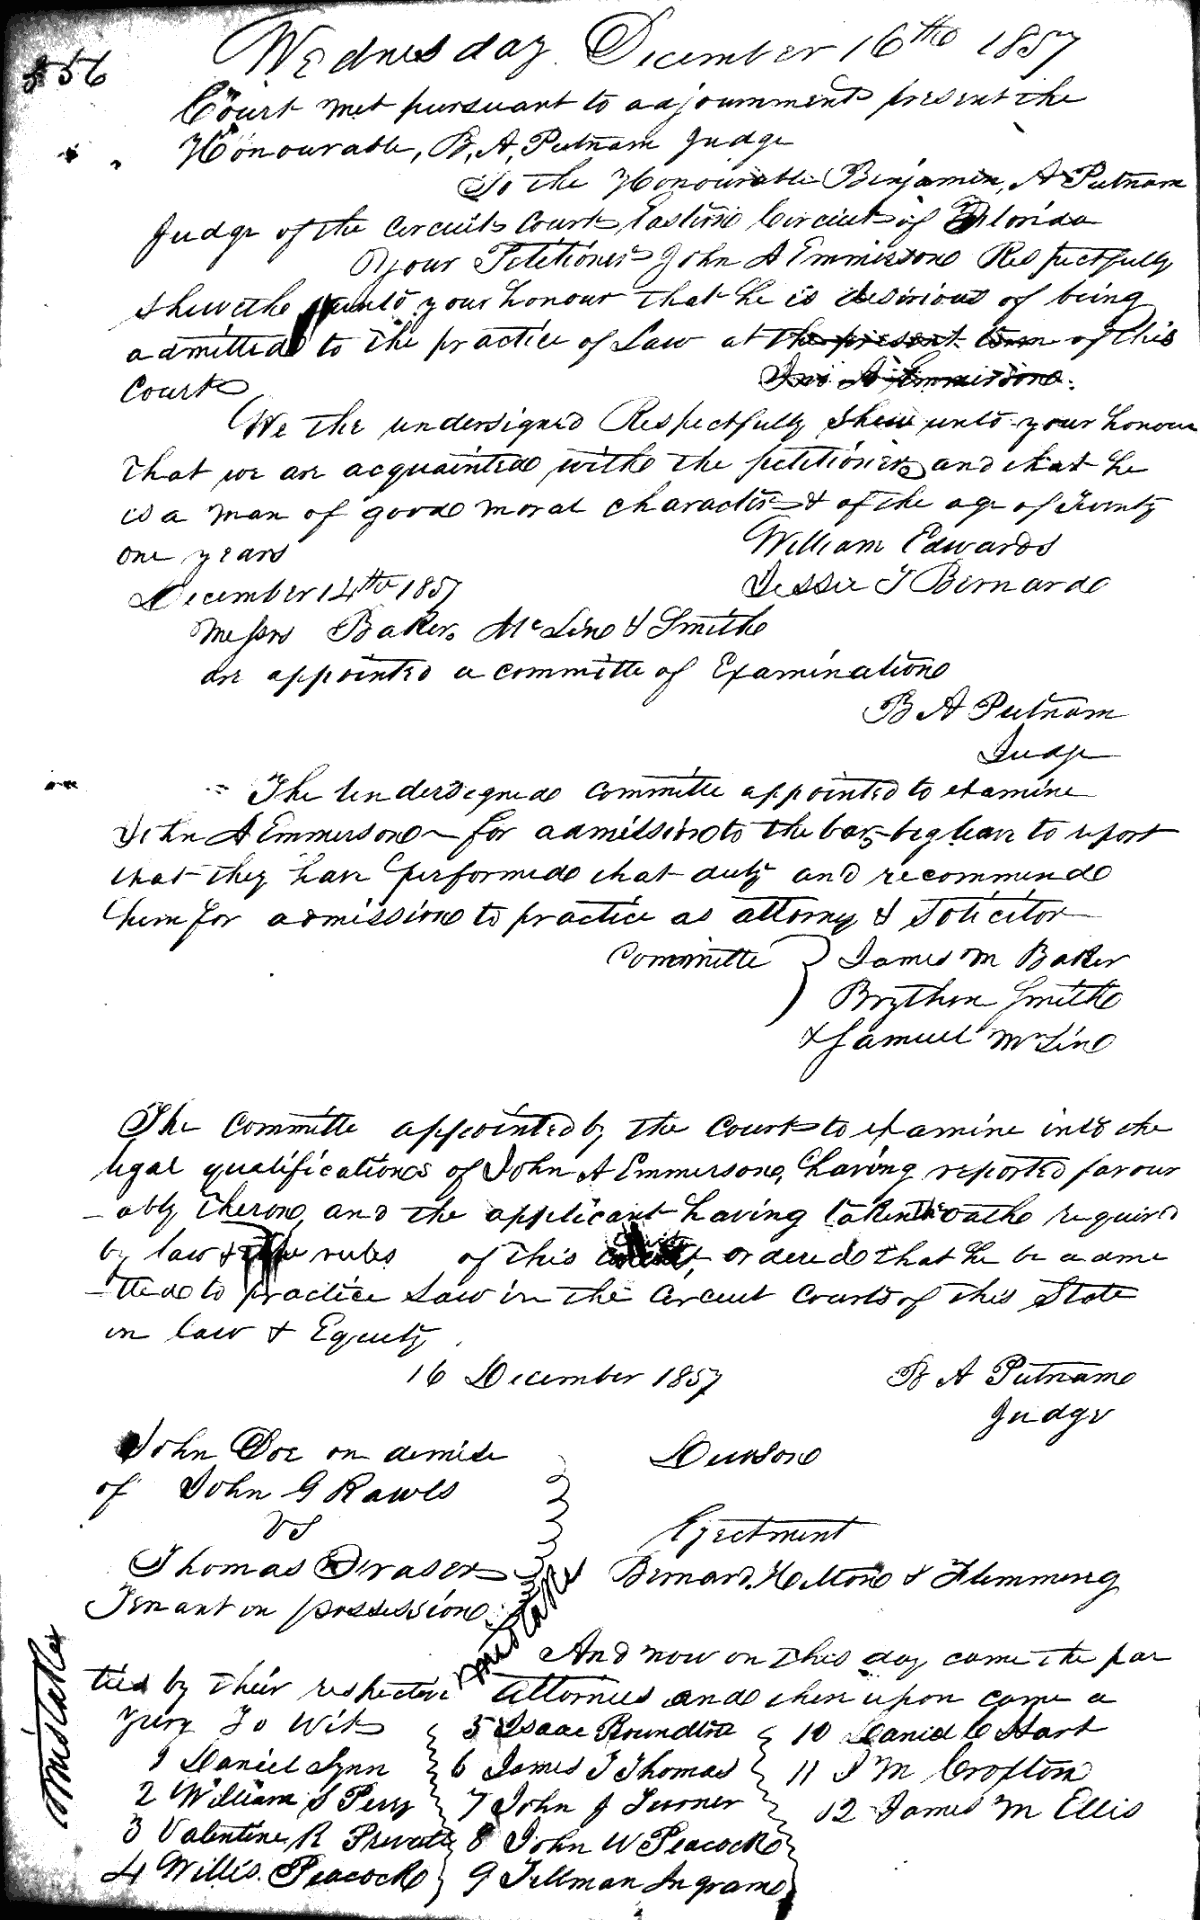 556
Wednesday December 16th 1857
Court met pursuant to adjournment present the
Honourable, B, A, Putnam Judge
To the Honourable Benjamin, A Putnam
Judge of the Circuit Court Eastern Circuit of Florida
Your Petitioner John A Emmerson Respectfully
sheweth unto your honour that he is desirious of being
admitted to the practice of Law at the present term of this
Court Jno A Emmerson.
We the undersigned Respectfully shew unto your honour
that we are acquainted with the petitioner and that he
is a man of good moral character & of the age of Twenty
one years William Edwards
December 14th 1857 Jesse T Bernard
Messrs Baker, McLin & Smith
are appointed a committe of Examination
B A Putnam
Judge
The Undersigned committe appointed to examine
John A Emmerson for admission to the bar, beg leave to report
that they have performed that duty and recommend
him for admission to practice as attorney & Solicitor
Committe } James M Baker
Brython Smith
& Samuel McLin
The Committe appointed by the Court to examine into the
legal qualifications of John A Emmerson, having reported favour
-ably theron, and the applicant having taken the oath required
by law & the rules of this court, ordered that he be adme
-tted to practice Law in the Circuit Courts of this State
in law & Equity
16 December 1857 B A Putnam
Judge
John Doe on demise Dawson
of John G Rawls
VS Ejectment
Thomas Fraser Bernard, Hilton & Flemming
Tenant in possession
mistake
And now on this day came the par
ties by their respective attornies and there upon came a
Jury To Wit
1 Daniel Lynn
2 William S Perry
3 Valentine R Prevatt
4 Willis Peacock
5 Isaac Roundtree
6 James T Thomas
7 John J Turner
8 John W Peacock
9 Tillman Ingram
10 Daniel C Hart
11 J M Crofton
12 James M Ellis
Mistake